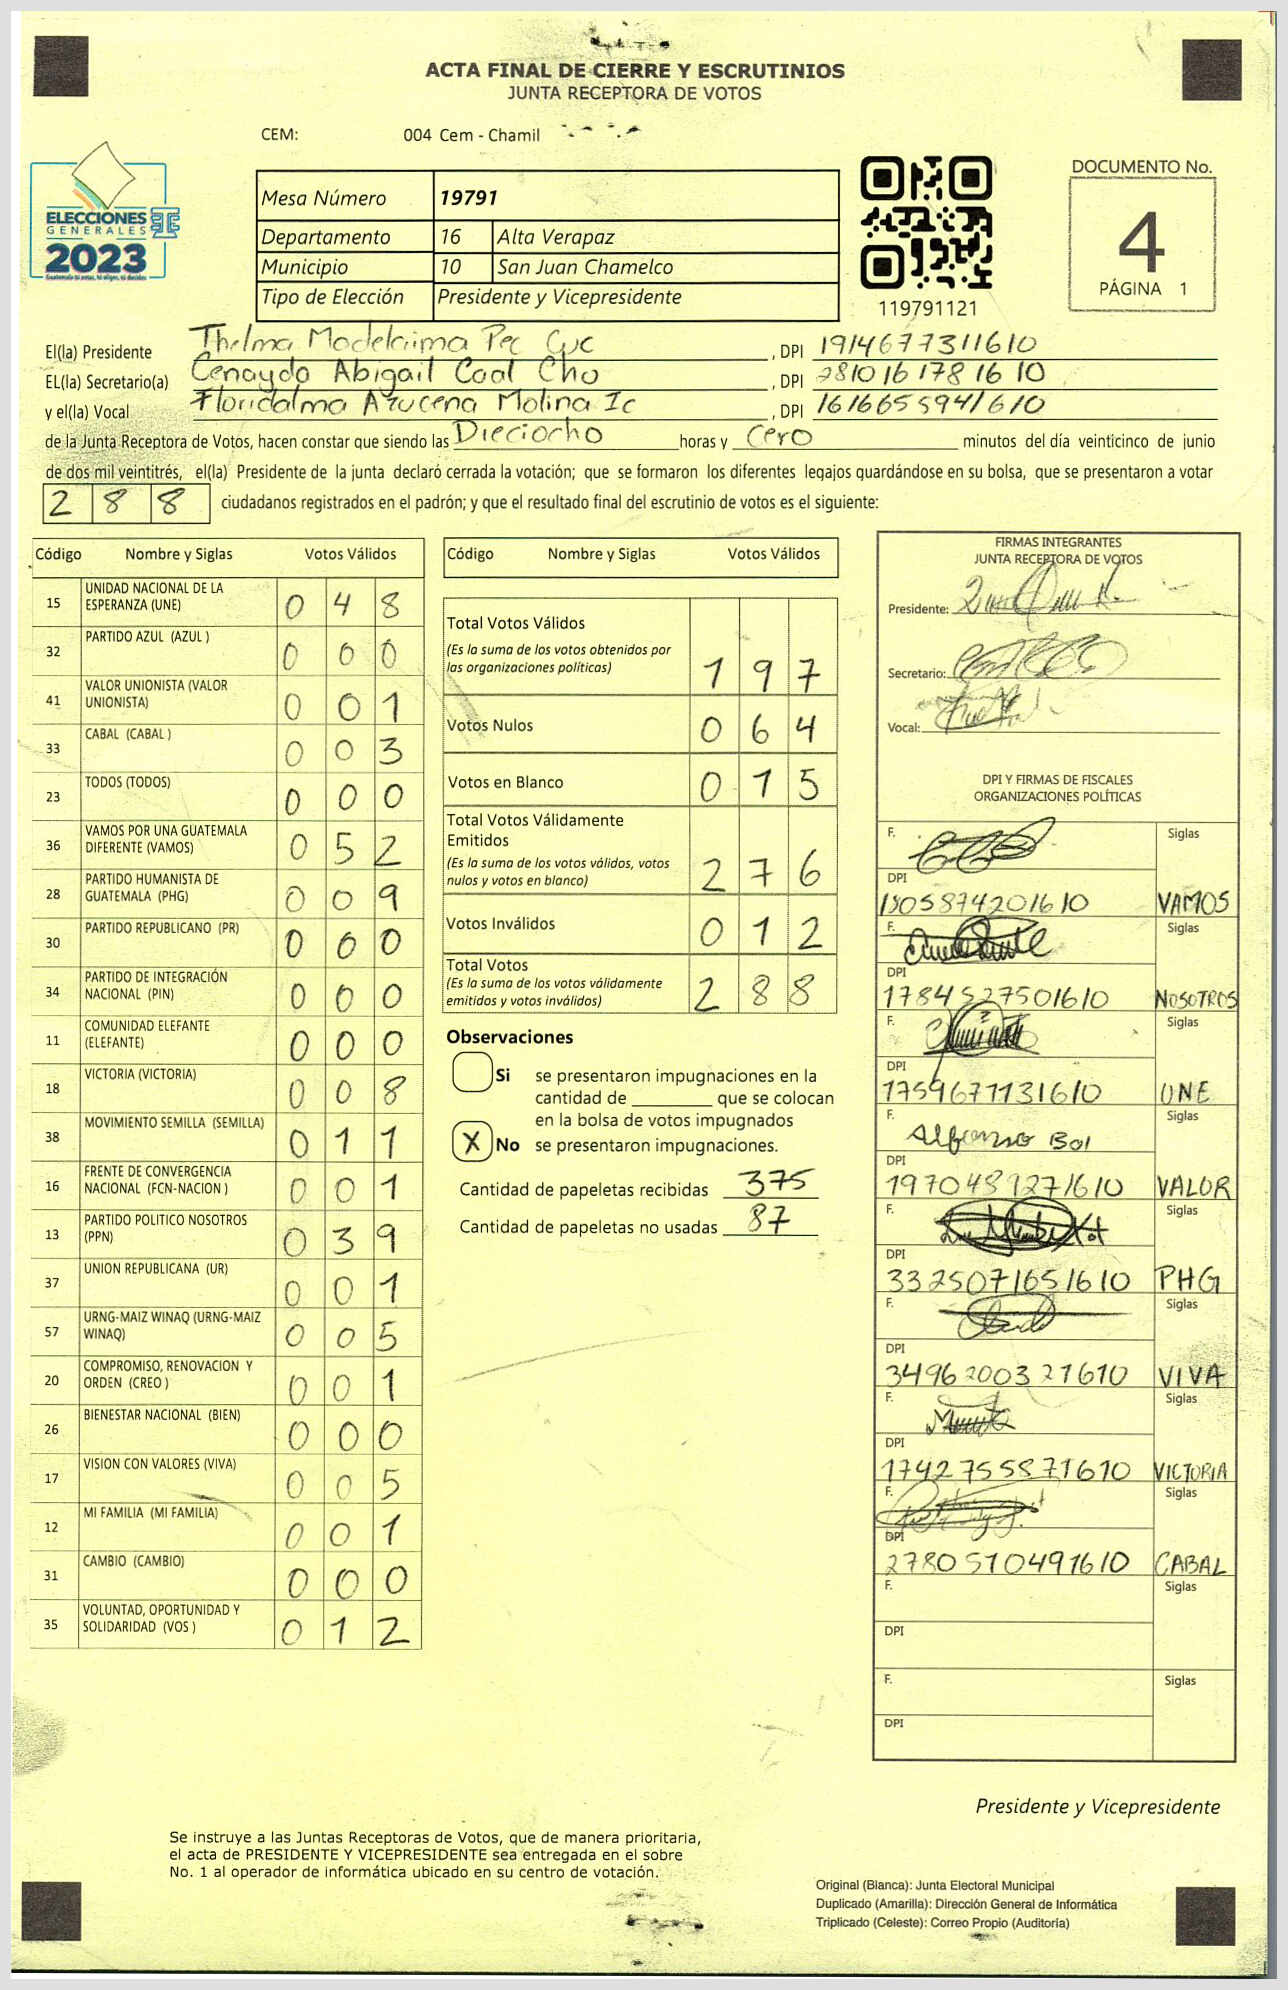 ACTA FINAL DE CIERRE Y ESCRUTINIOS
JUNTA RECEPTORA DE VOTOS
CEM: 004 Cem - Chamil
ELECCIONES
GENERALES
2023
Mesa Número 19791
Departamento 16 Alta Verapaz
Municipio 10 San Juan Chamelco
Tipo de Elección Presidente y Vicepresidente
119791121
DOCUMENTO No.
4
PÁGINA 1
El(la) Presidente Thelma Madelaima Pec Cuc , DPI 1914677311610
EL(la) Secretario(a) Cenayda Abigail Coal Cho , DPI 2810161781610
y el(la) Vocal Floridalma Azucena Molina Ic , DPI 1616655941610
de la Junta Receptora de Votos, hacen constar que siendo las Dieciocho horas y Cero minutos del día veinticinco de junio
de dos mil veintitrés, el(la) Presidente de la junta declaró cerrada la votación; que se formaron los diferentes legajos guardándose en su bolsa, que se presentaron a votar
288 ciudadanos registrados en el padrón; y que el resultado final del escrutinio de votos es el siguiente:
Código Nombre y Siglas Votos Válidos
15 UNIDAD NACIONAL DE LA ESPERANZA (UNE) 0 4 8
32 PARTIDO AZUL (AZUL ) 0 0 0
41 VALOR UNIONISTA (VALOR UNIONISTA) 0 0 1
33 CABAL (CABAL ) 0 0 3
23 TODOS (TODOS) 0 0 0
36 VAMOS POR UNA GUATEMALA DIFERENTE (VAMOS) 0 5 2
28 PARTIDO HUMANISTA DE GUATEMALA (PHG) 0 0 9
30 PARTIDO REPUBLICANO (PR) 0 0 0
34 PARTIDO DE INTEGRACIÓN NACIONAL (PIN) 0 0 0
11 COMUNIDAD ELEFANTE (ELEFANTE) 0 0 0
18 VICTORIA (VICTORIA) 0 0 8
38 MOVIMIENTO SEMILLA (SEMILLA) 0 1 1
16 FRENTE DE CONVERGENCIA NACIONAL (FCN-NACION ) 0 0 1
13 PARTIDO POLITICO NOSOTROS (PPN) 0 3 9
37 UNION REPUBLICANA (UR) 0 0 1
57 URNG-MAIZ WINAQ (URNG-MAIZ WINAQ) 0 0 5
20 COMPROMISO, RENOVACION Y ORDEN (CREO ) 0 0 1
26 BIENESTAR NACIONAL (BIEN) 0 0 0
17 VISION CON VALORES (VIVA) 0 0 5
12 MI FAMILIA (MI FAMILIA) 0 0 1
31 CAMBIO (CAMBIO) 0 0 0
35 VOLUNTAD, OPORTUNIDAD Y SOLIDARIDAD (VOS ) 0 1 2
Código Nombre y Siglas Votos Válidos
Total Votos Válidos
(Es la suma de los votos obtenidos por
las organizaciones políticas) 1 9 7
Votos Nulos 0 6 4
Votos en Blanco 0 1 5
Total Votos Válidamente
Emitidos
(Es la suma de los votos válidos, votos
nulos y votos en blanco) 2 7 6
Votos Inválidos 0 1 2
Total Votos
(Es la suma de los votos válidamente
emitidos y votos inválidos) 2 8 8
Observaciones
Si se presentaron impugnaciones en la
cantidad de ________ que se colocan
en la bolsa de votos impugnados
X No se presentaron impugnaciones.
Cantidad de papeletas recibidas 375
Cantidad de papeletas no usadas 87
FIRMAS INTEGRANTES
JUNTA RECEPTORA DE VOTOS
Presidente:
Secretario:
Vocal:
DPI Y FIRMAS DE FISCALES
ORGANIZACIONES POLÍTICAS
F. Siglas
DPI
1805874201610 VAMOS
F. Siglas
DPI
1784527501610 NOSOTROS
F. Siglas
DPI
1759671131610 UNE
F. Alfonso Bol Siglas
DPI
1970489271610 VALOR
F. Siglas
DPI
3325071651610 PHG
F. Siglas
DPI
3496200321610 VIVA
F. Siglas
DPI
1742755871610 VICTORIA
F. Siglas
DPI
2780510491610 CABAL
F. Siglas
DPI
F. Siglas
DPI
Presidente y Vicepresidente
Se instruye a las Juntas Receptoras de Votos, que de manera prioritaria,
el acta de PRESIDENTE Y VICEPRESIDENTE sea entregada en el sobre
No. 1 al operador de informática ubicado en su centro de votación.
Original (Blanca): Junta Electoral Municipal
Duplicado (Amarilla): Dirección General de Informática
Triplicado (Celeste): Correo Propio (Auditoría)